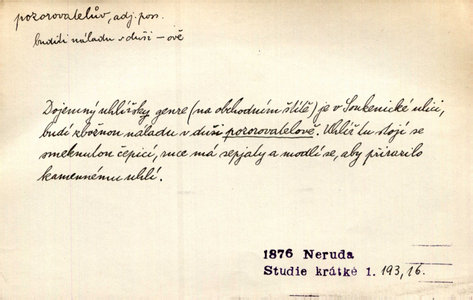 pozorovatelův, adj. poss.
buditi náladu v duši – ově
Dojemný uhlířský genre (na obchodním štítě) je v Soukenické ulici,
budí zbožnou náladu v duši pozorovatelově. Uhlíř tu stojí se
smeknutou čepicí, ruce má sepjaty a modlí se, aby přirazilo
kamennému uhlí.
1876 Neruda
Studie krátké 1. 193, 16.